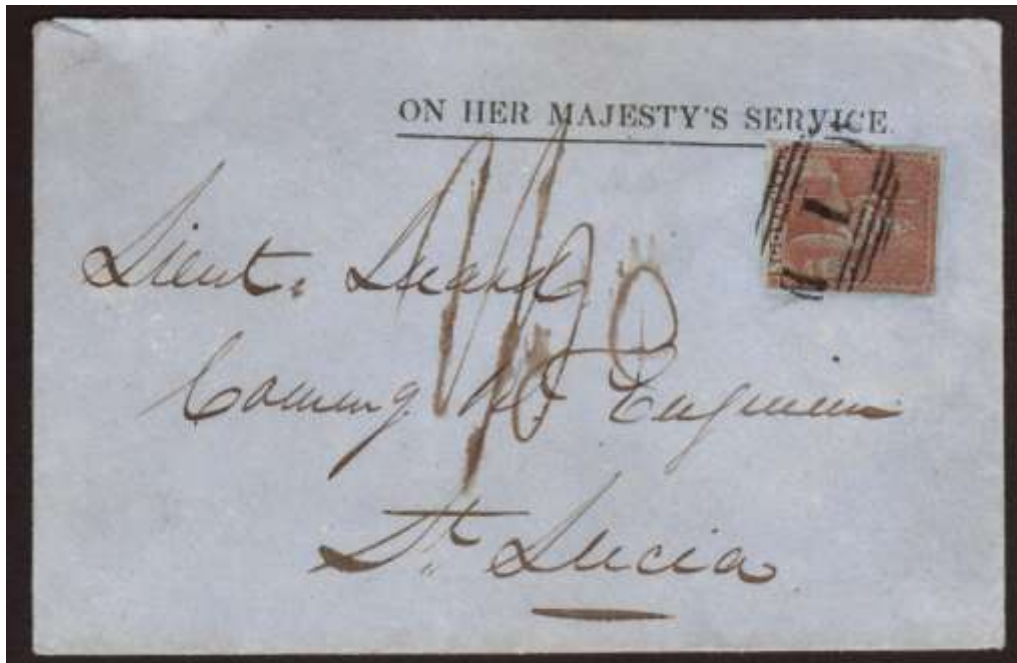 ON HER MAJESTY'S SERVICE.
Lieut. Luard
Commg. Rl. Engineer
St. Lucia